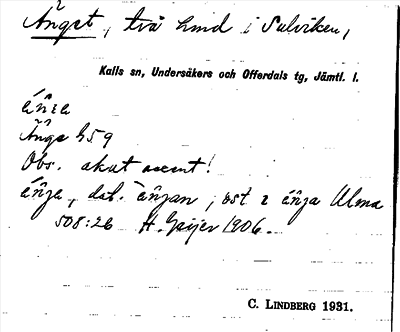 Änget, två hmd i Sulviken,
Kalls sn, Undersåkers och Offerdals tg, Jämtl. l.
Änge h 59
Obs. akut accent!
énja, dat. énjan, ost 2 énja Ulma
508:26 H. Geijer 1906.
C. LINDBERG 1931.